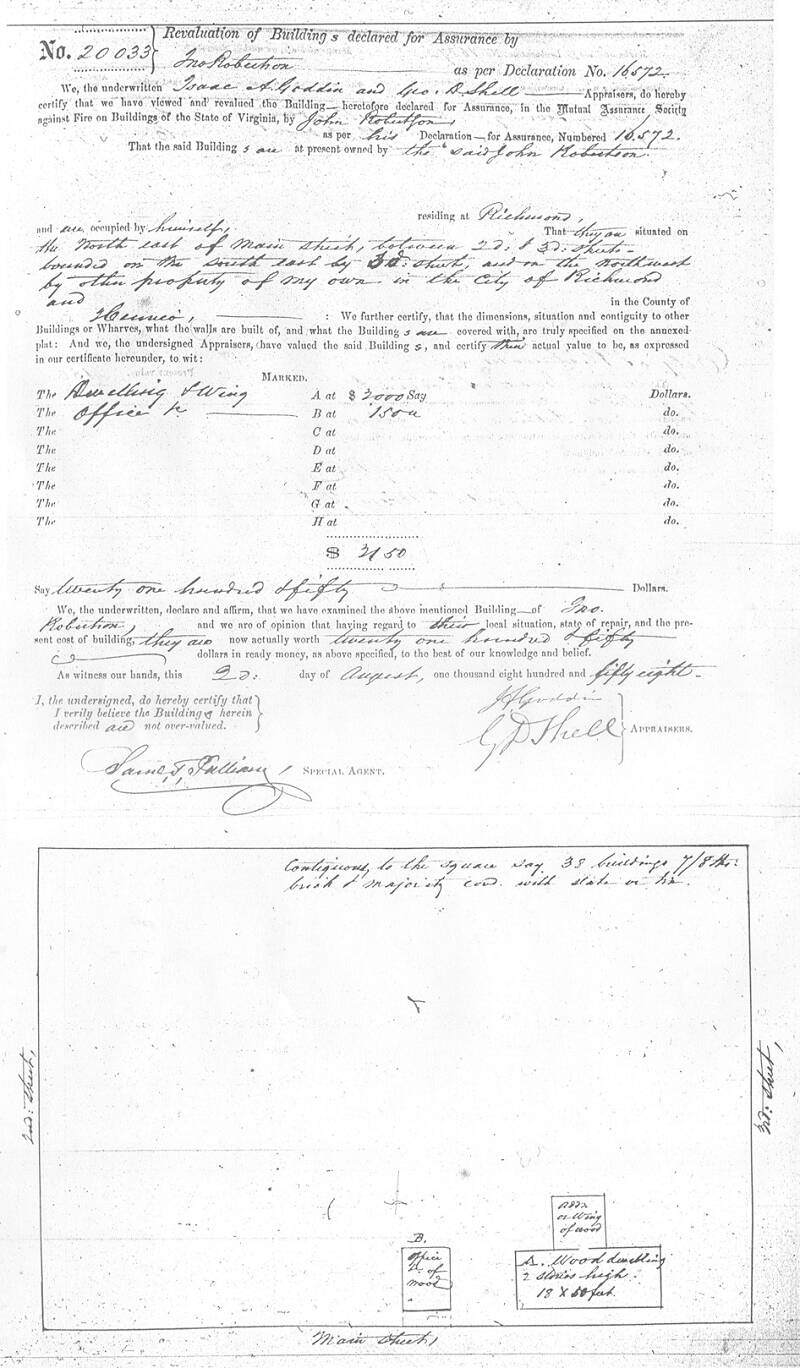 Revaluation of Buildings declared for Assurance by
No. 20033
Jno Robertson as per Declaration No. 16572.
We, the underwritten Isaac A. Goddin and Geo. D. Shell Appraisers, do hereby
certify that we have viewed and revalued the Building heretofore declared for Assurance, in the Mutual Assurance Society
against Fire on Buildings of the State of Virginia, by John Robertson,
as per his Declaration for Assurance, Numbered 16,572.
That the said Buildings are at present owned by the said John Robertson.
residing at Richmond,
and are occupied by himself, That they are situated on
the North east of main street, between 2d: & 3d: Streets
bounded on the south east by 3d: street, and on the northwest
by other property of my own in the City of Richmond
and in the County of
Henrico, : We further certify, that the dimensions, situation and contiguity to other
Buildings or Wharves, what the walls are built of, and what the Buildings are covered with, are truly specified on the annexed
plat: And we, the undersigned Appraisers, have valued the said Buildings, and certify their actual value to be, as expressed
in our certificate hereunder, to wit:
MARKED.
The Dwelling & Wing A at $ 2000 Say Dollars.
The Office &c B at 150 " do.
The C at do.
The D at do.
The E at do.
The F at do.
The G at do.
The H at do.
$ 2150
Say twenty one hundred & fifty Dollars.
We, the underwritten, declare and affirm, that we have examined the above mentioned Building of Jno.
Robertson, and we are of opinion that having regard to their local situation, state of repair, and the pre-
sent cost of building, they are now actually worth twenty one hundred & fifty
dollars in ready money, as above specified, to the best of our knowledge and belief.
As witness our hands, this 2d: day of August, one thousand eight hundred and fifty eight.
I, the undersigned, do hereby certify that
I verily believe the Buildings herein
described are not over-valued.
Goddin
G D Shell APPRAISERS.
Saml. T. Pulliam, SPECIAL AGENT.
Contiguous to the square say 38 buildings 7/8 ths:
brick & majority cov'd. with slate or tin.
2nd: Street,
3d: Street,
Addn
or Wing
of wood
B.
Office
&c. of
wood
A. Wood dwelling
2 stories high.
18 X 50 feet
Main Street,